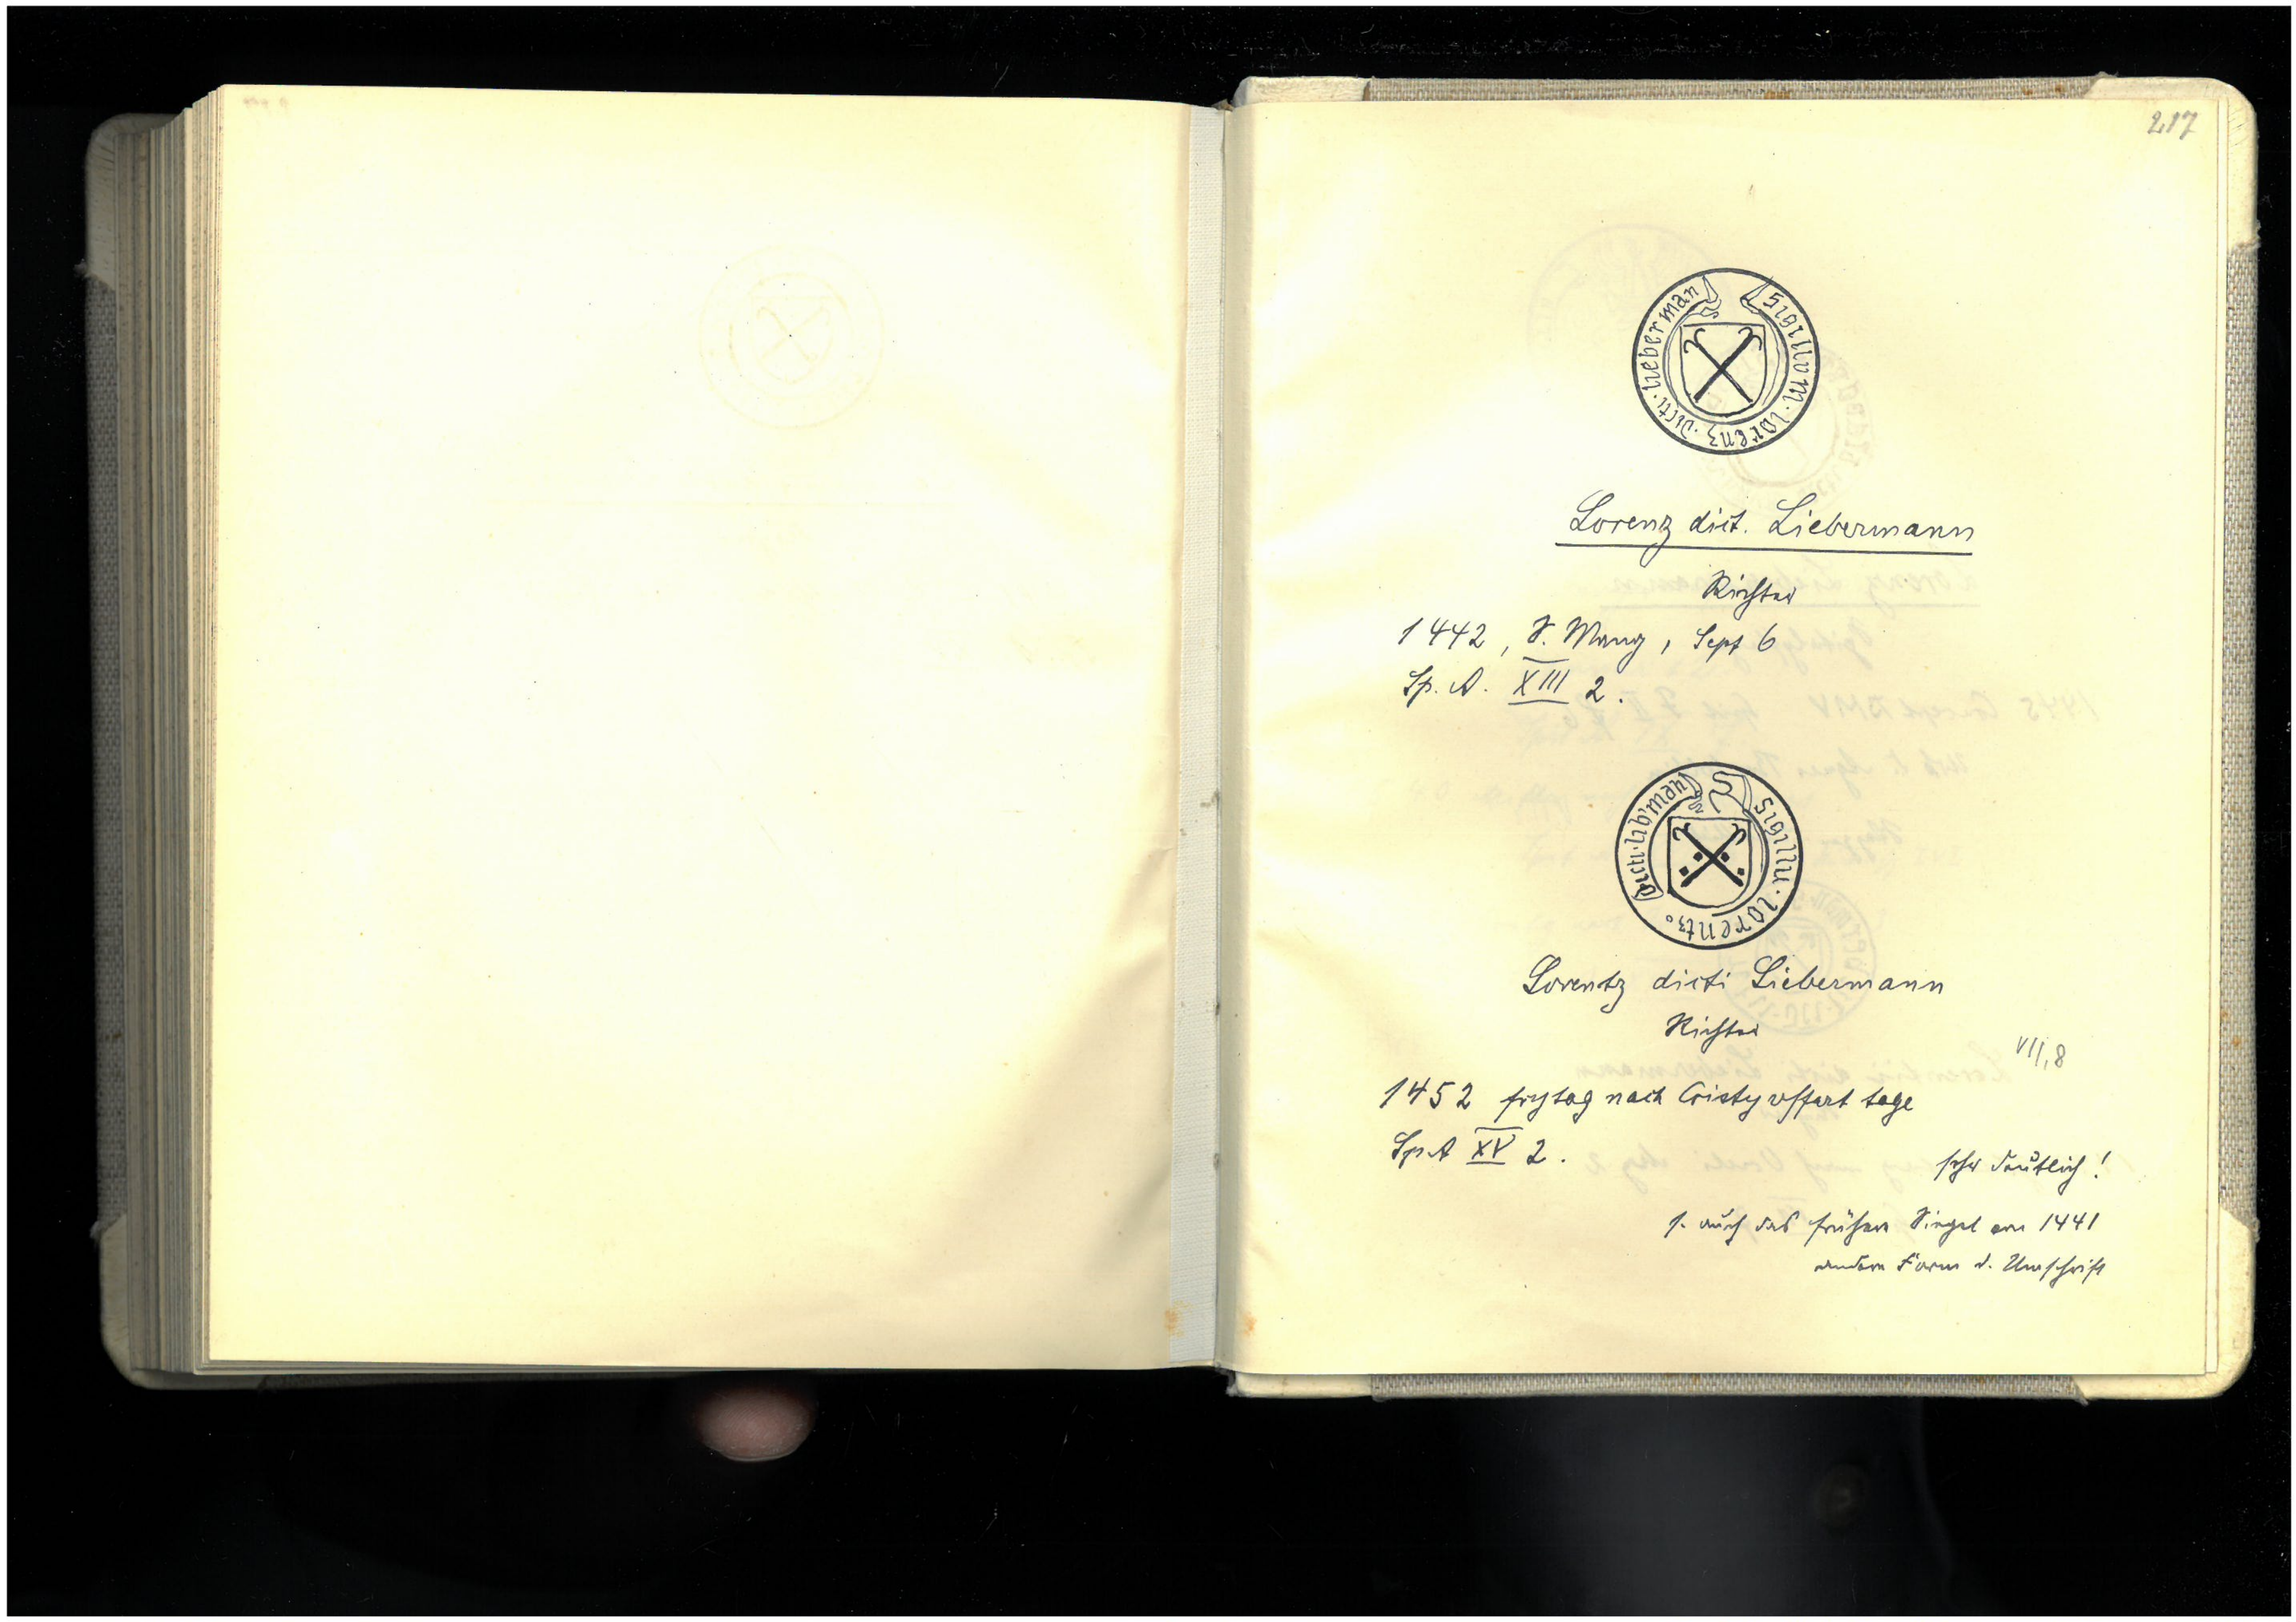 217
sigillum · lorenz · dicti · lieberman
Lorenz dict. Liebermann
Richter
1442, S. Mang, Sept 6
Sp. A. XIII 2.
sigillu · lorentz dicti · lib'man
Lorentz dicti Liebermann
Richter
VII, 8
1452 frytag nach Cristy uffart tage
Sp. A XV 2.
sehr deutlich!
s. auch das frühere Siegel von 1441
andere Form d. Umschrift